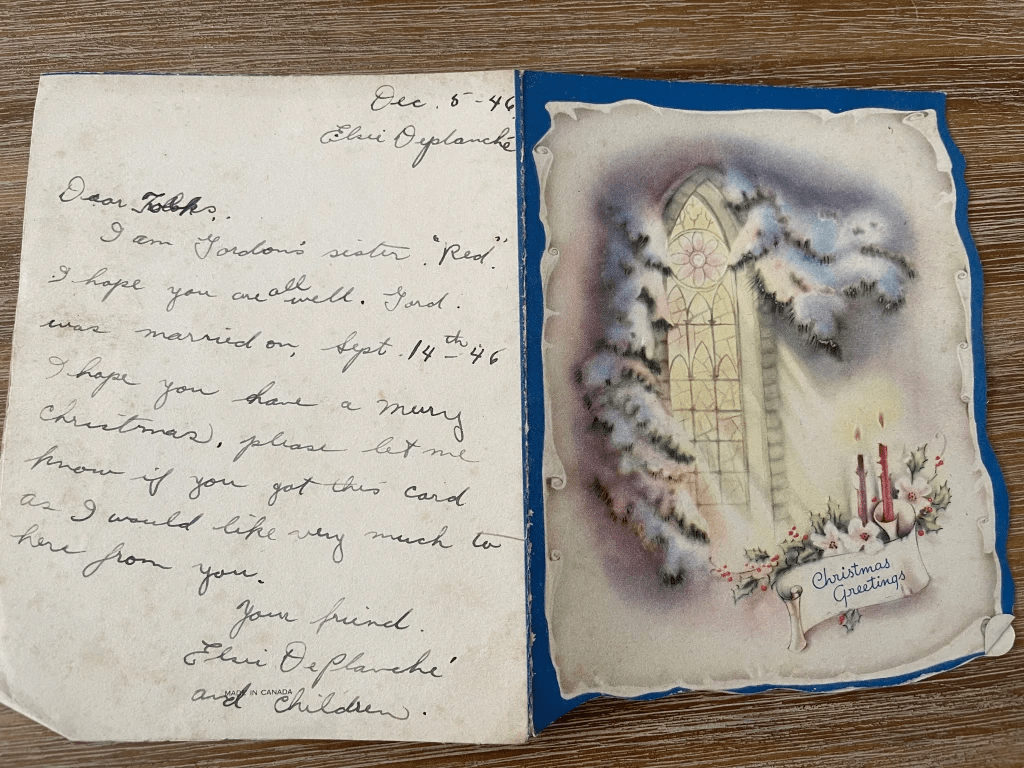 Dec. 5-46
Elsie Deplanché
Dear Folks.
I am Gordon's sister "Red."
I hope you are all well. Gord.
was married on, Sept. 14th-46
I hope you have a merry
Christmas, please let me
know if you got this card
as I would like very much to
here from you.
Your friend.
Elsie DePlanché
and Children.
MADE IN CANADA
Christmas
Greetings